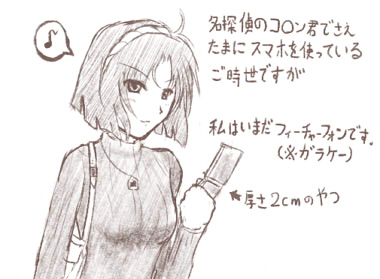 名探偵のコ〇ン君でさえ
たまにスマホを使っている
ご時世ですが
私はいまだフィーチャーフォンです。
(※ガラケー)
←厚さ2cmのやつ
♪